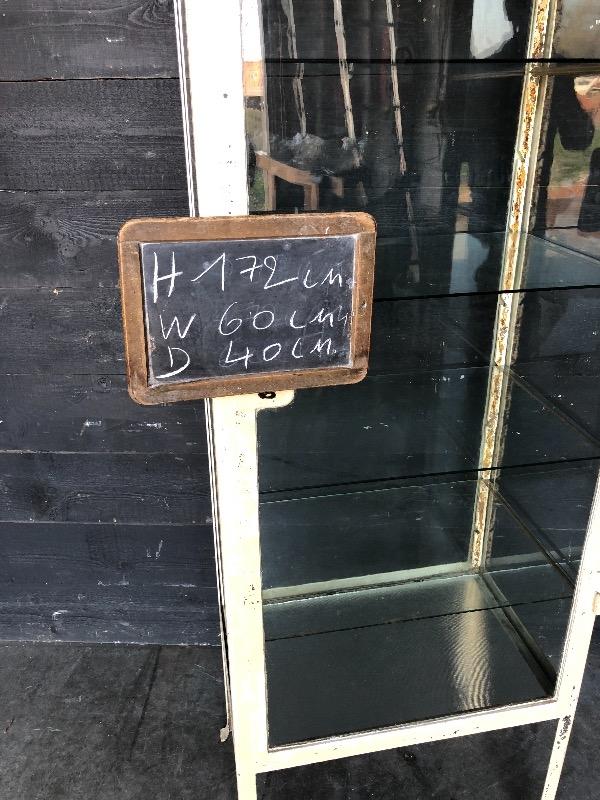 H 172 cm.
W 60 cm
D 40 cm.